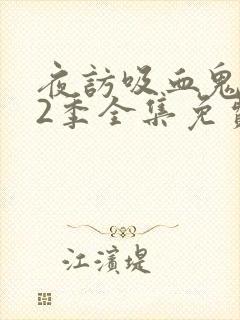 夜訪吸血鬼
2季全集免費
江濱堤